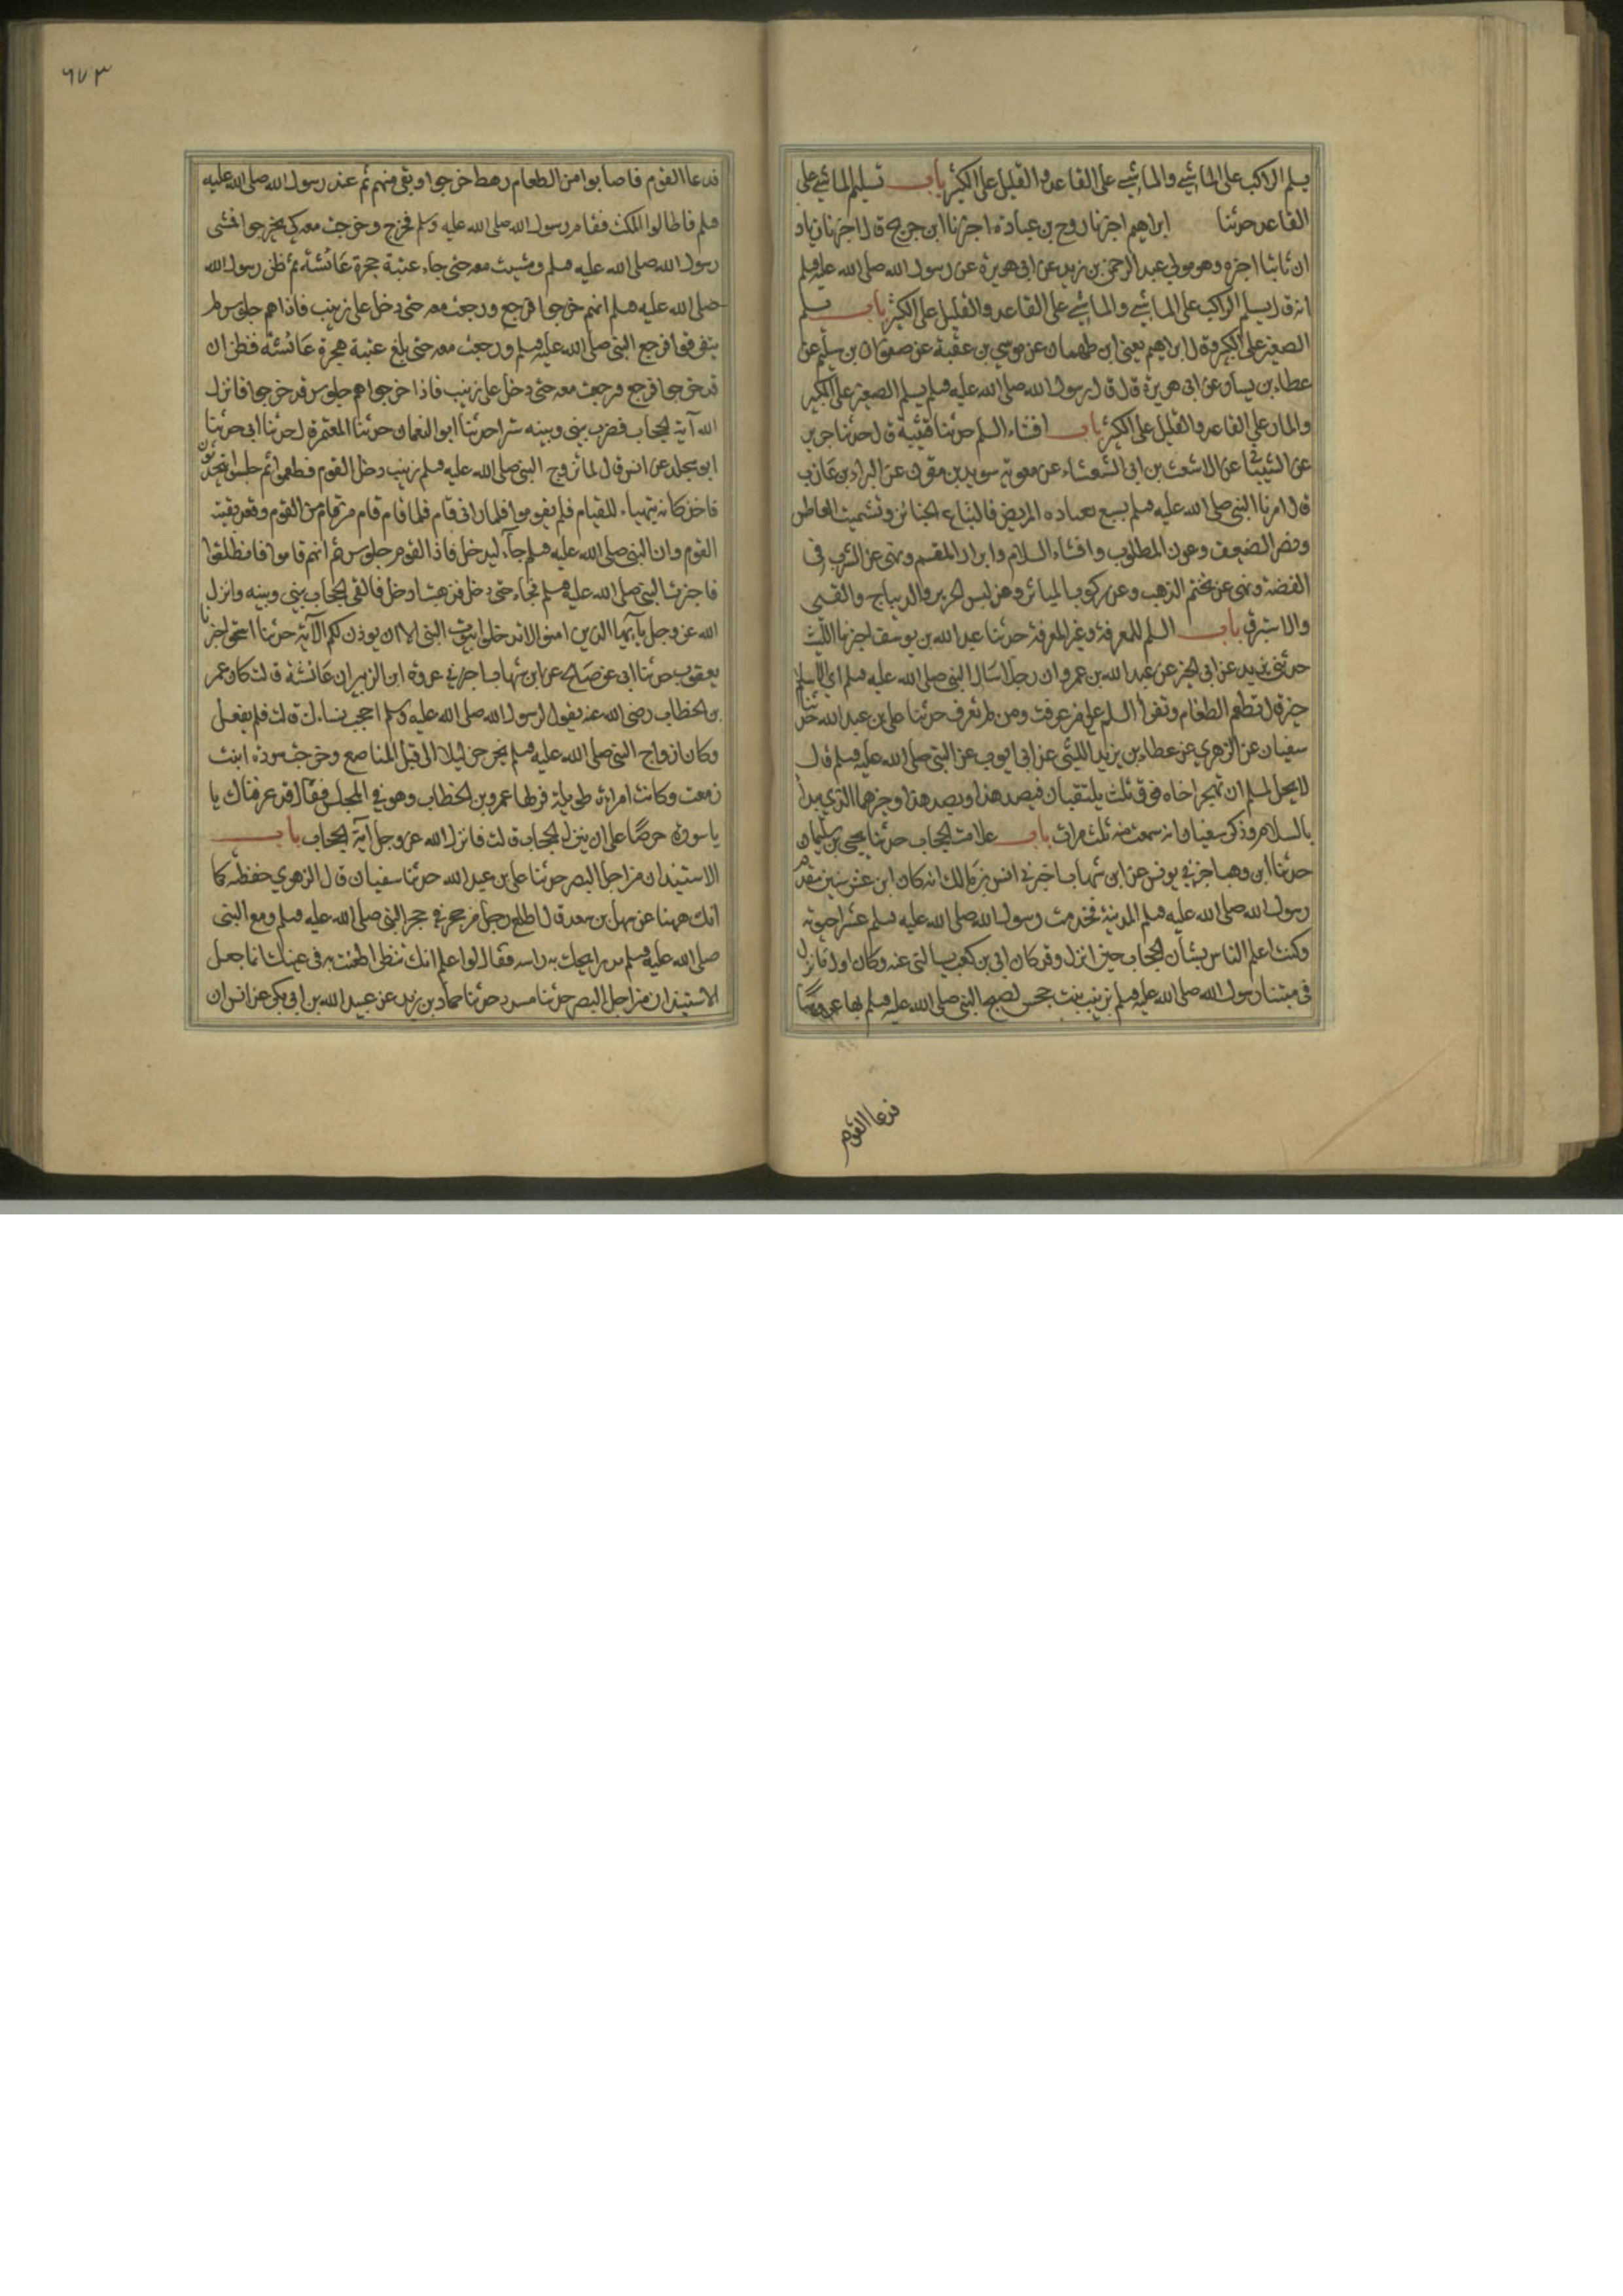 يسلم الراكب على الماشي والماشي على القاعد والقليل على الكثير باب تسليم الماشي على
القاعد حدثنا ابراهيم اخبرنا روح بن عبادة اخبرنا ابن جريج قال اخبرنا زياد
ان ثابتا اخبره وهو مولى عبد الرحمن بن زيد عن ابي هريرة عن رسول الله صلى الله عليه وسلم
انه قال يسلم الراكب على الماشي والماشي على القاعد والقليل على الكثير باب تسلم
الصغير على الكبير وقال ابراهيم يعني ابن طهمان عن موسي بن عقبة عن صفوان بن سليم عن
عطاء بن يسار عن ابي هريرة قال قال رسول الله صلى الله عليه وسلم يسلم الصغير على الكبير
والمار على القاعد والقليل على الكثير باب افشاء السلم حدثنا قتيبة قال حدثنا جرير
عن الشيبانى عن الاشعث بن ابي الشعثاء عن معوية سويد بن مقرن عن البراء بن عازب
قال امرنا النبي صلى الله عليه وسلم بسبع بعيادة المريض واتباع الجنائز وتشميت العاطس
ونصر الضعيف وعون المظلوم وافشاء السلام وابرار المقسم ونهى عن الشرب في
الفضة ونهى عن تختم الذهب وعن ركوب المياثر وعن لبس الحرير والديباج والقسي
والاستبرق باب السلم للمعرفة وغير المعرفة حدثنا عبد الله بن يوسف اخبرنا الليث
حدثني يزيد عن ابي الخير عن عبد الله بن عمرو ان رجلا سال النبي صلى الله عليه وسلم اي الاسلام
خير قال تطعم الطعام وتقرأ السلم على من عرفت ومن لم تعرف حدثنا علي بن عبد الله حدثنا
سفيان عن الزهري عن عطاء بن يزيد الليثي عن ابي ايوب عن النبي صلى الله عليه وسلم قال
لا يحل لمسلم ان يهجر اخاه فوق ثلث يلتقيان فيصد هذا ويصد هذا وخيرهما الذي يبدأ
بالسلام وذكر سفيان انه سمعت منه ثلث مرات باب علامت الحجاب حدثنا يحيى بن سليمان
حدثنا ابن وهب اخبرني يونس عن ابن شهاب اخبرني انس بن مالك انه كان ابن عشر سنين مقدم
رسول الله صلى الله عليه وسلم المدينة فخدمت رسول الله صلى الله عليه وسلم عشرا حيوته
وكنت اعلم الناس بشأن الحجاب حين انزل وقد كان ابي بن كعب يسالني عنه وكان اول ما نزل
في مبتنا رسول الله صلى الله عليه وسلم بزينب بنت جحس اصبح النبي صلى الله عليه وسلم بها عروسا
فدعا القوم
٦٧٣
فدعا القوم فاصابوا من الطعام رهط خرجوا وبقي منهم ثم عند رسول الله صلى الله عليه
وسلم فاطالوا المكث فقام رسول الله صلى الله عليه وسلم فخرج وخرجت معه كي يخرجوا فمشى
رسول الله صلى الله عليه وسلم ومشيت معه حتى جاء عتبة حجرة عائشة ثم ظن رسول الله
صلى الله عليه وسلم انهم خرجوا فرجع ورجعت معه حتى دخل على زينب فاذا هم جلوس لم
يتفرقوا فرجع النبي صلى الله عليه وسلم ورجعت معه حتى بلغ عتبة حجرة عائشة فظن ان
قد خرجوا فرجع فرجعت معه حتى دخل على زينب فاذا خرجوا هم جلوس قد خرجوا فانزل
الله آية الحجاب فضرب بيني وبينه سترا حدثنا ابو النعمان حدثنا المعتمر قال حدثنا ابي حدثنا
ابو مجلد عن انس قال لما تزوج النبي صلى الله عليه وسلم زينب دخل القوم فطعموا ثم جلسوا يتحدثون
فاخذ كانه يتهياء للقيام فلم يقوموا فلما راى قام فلما قام قام من قام من القوم وقعد بقية
القوم وان النبي صلى الله عليه وسلم جاء ليدخل فاذا القوم جلوس ثم انهم قاموا فانطلقوا
فاخبرت النبي صلى الله عليه وسلم فجاء حتى دخل فذهبت ادخل فالقى الحجاب بيني وبينه وانزل
الله عز وجل يا ايها الذين امنوا لا تدخلوا بيوت النبي الا ان يوذن لكم الآية حدثنا اسحق اخبرنا
يعقوب حدثنا ابي عن صالح عن ابن شهاب اخبرني عروة ابن الزبير ان عائشة قالت كان عمر
بن الخطاب رضي الله عنه يقول لرسول الله صلى الله عليه وسلم احجب نساءك قالت فلم يفعل
وكان ازواج النبي صلى الله عليه وسلم يخرجن ليلا الى قبل المناصع وخرجت سودة ابنت
زمعت وكانت امراة طويلة فرآها عمرو بن الخطاب وهو في المجلس فقال قد عرفناك يا
يا سودة حرصا على ان ينزل الحجاب قالت فانزل الله عز وجل آية الحجاب باب
الاستيذان من اجل البصر حدثنا علي بن عبد الله حدثنا سفيان قال الزهري حفظته كما
انك ههنا عن سهل بن سعد قال اطلع رجل من حجر في حجر النبي صلى الله عليه وسلم ومع النبي
صلى الله عليه وسلم مدرا يحك به راسه فقال لو اعلم انك تنظر لطعنت به في عينك انما جعل
الاستيذان من اجل البصر حدثنا مسدد حدثنا حماد بن زيد عن عبيد الله بن ابي بكر عن انس ان